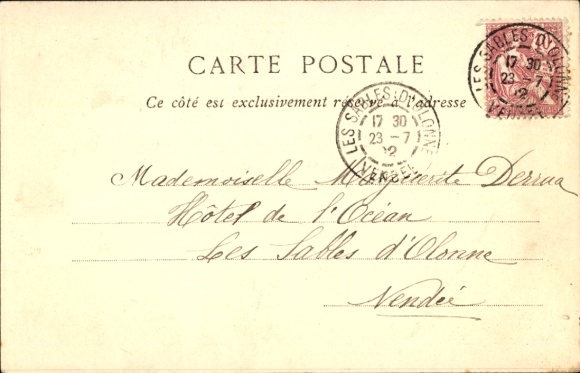 CARTE POSTALE
Ce côté est exclusivement réservé à l'adresse
LES SABLES-D'OLONNE
17 30
23 - 7
02
VENDEE
LES SABLES-D'OLONNE
17 30
23 - 7
02
VENDEE
Mademoiselle Marguerite
Hôtel de l'Océan
Les Sables d'Olonne
Vendée